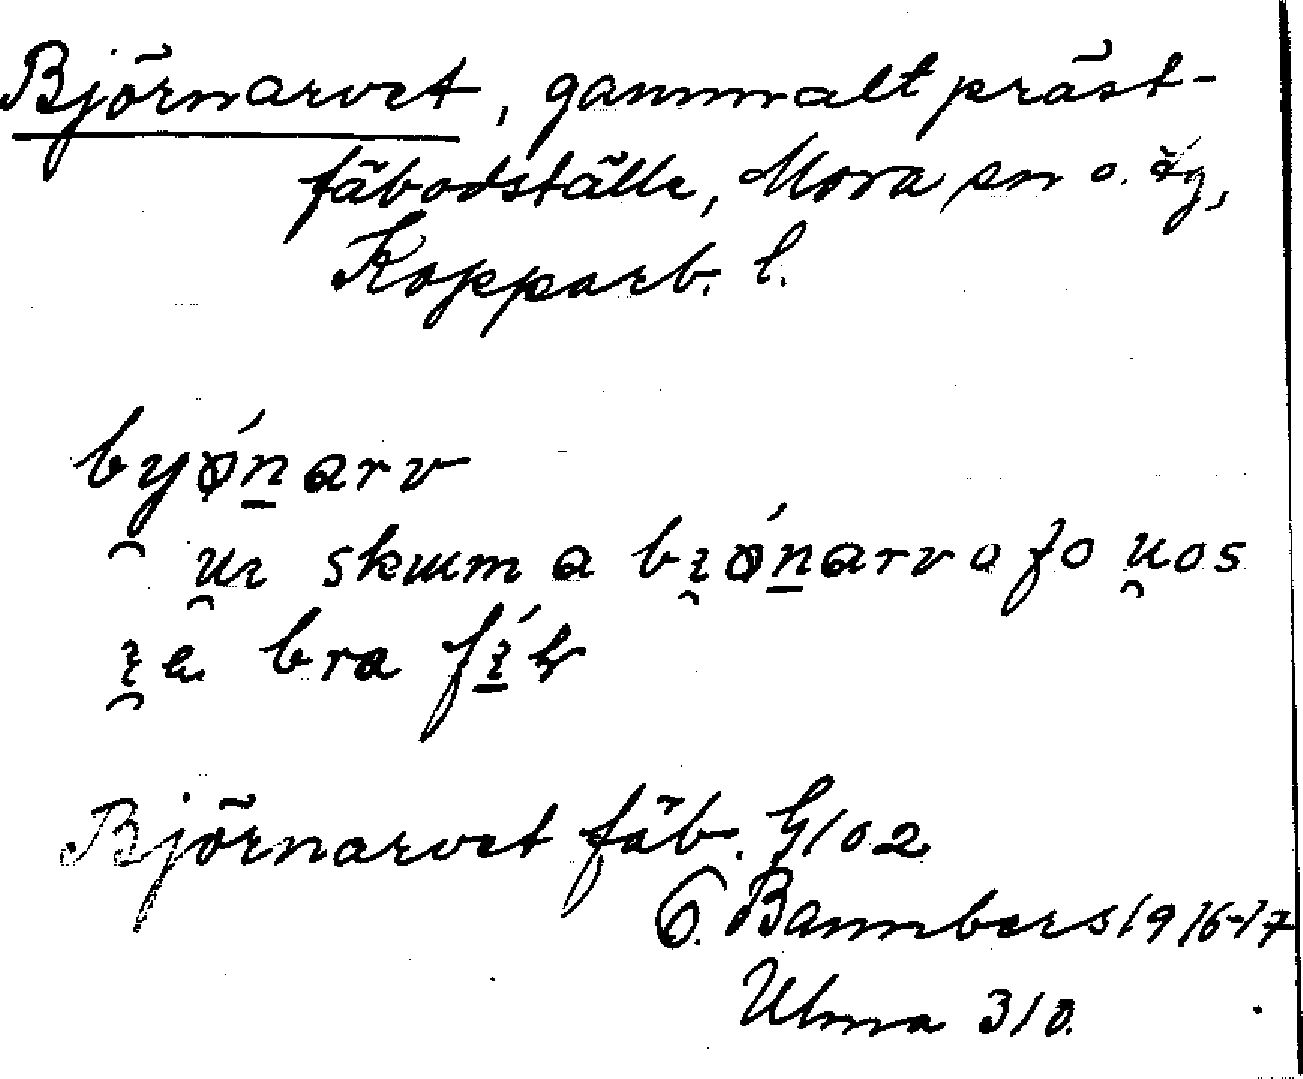 Björnarvet, gammalt präst-
fäbodställe, Mora sn o. tg,
Kopparb. l.
byǿn̲arv
u̯ɪ skum a bɪ̯ǿn̲arv o fo u̯os
ɪ̯e bra
Björnarvet fäb. G102
O. Bannbers 1916-17
Ulma 310.